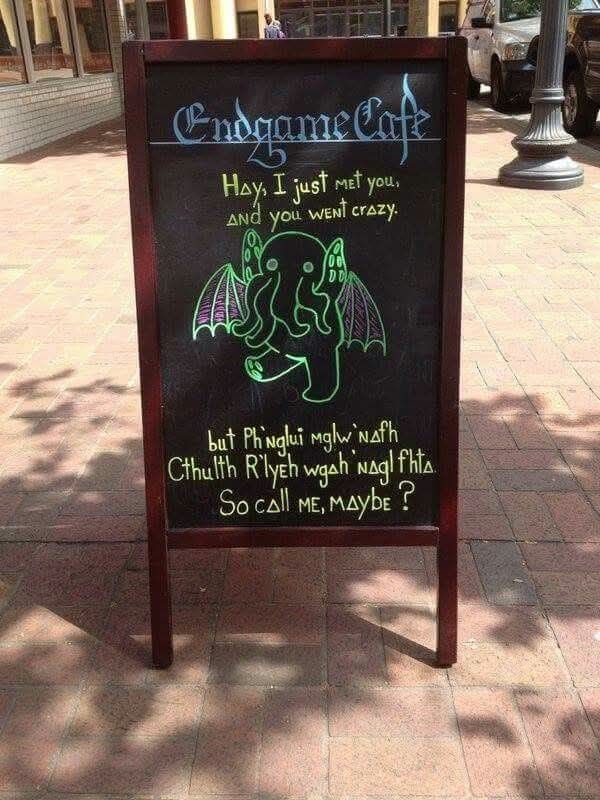 Endgame Cafe
Hay, I just met you,
and you went crazy.
but Ph'nglui mglw'nafh
Cthulth R'lyeh wgah'nagl fhta.
So call me, maybe?